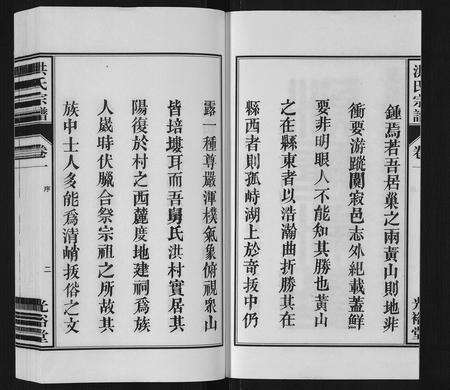 洪氏宗譜
卷一
鍾焉若吾居巢之兩黃山則地非
衝要游蹤闃寂邑志外紀載蓋鮮
要非明眼人不能知其勝也黃山
之在縣東者以浩瀚曲折勝其在
縣西者則孤峙湖上於奇拔中仍
光裕堂
露一種尊嚴渾樸氣象俯視眾山
皆培塿耳而吾舅氏洪村實居其
陽復於村之西麓度地建祠為族
人歲時伏臘合祭宗祖之所故其
族中士人多能為清峭拔俗之文
洪氏宗譜
卷一
序
二
光裕堂